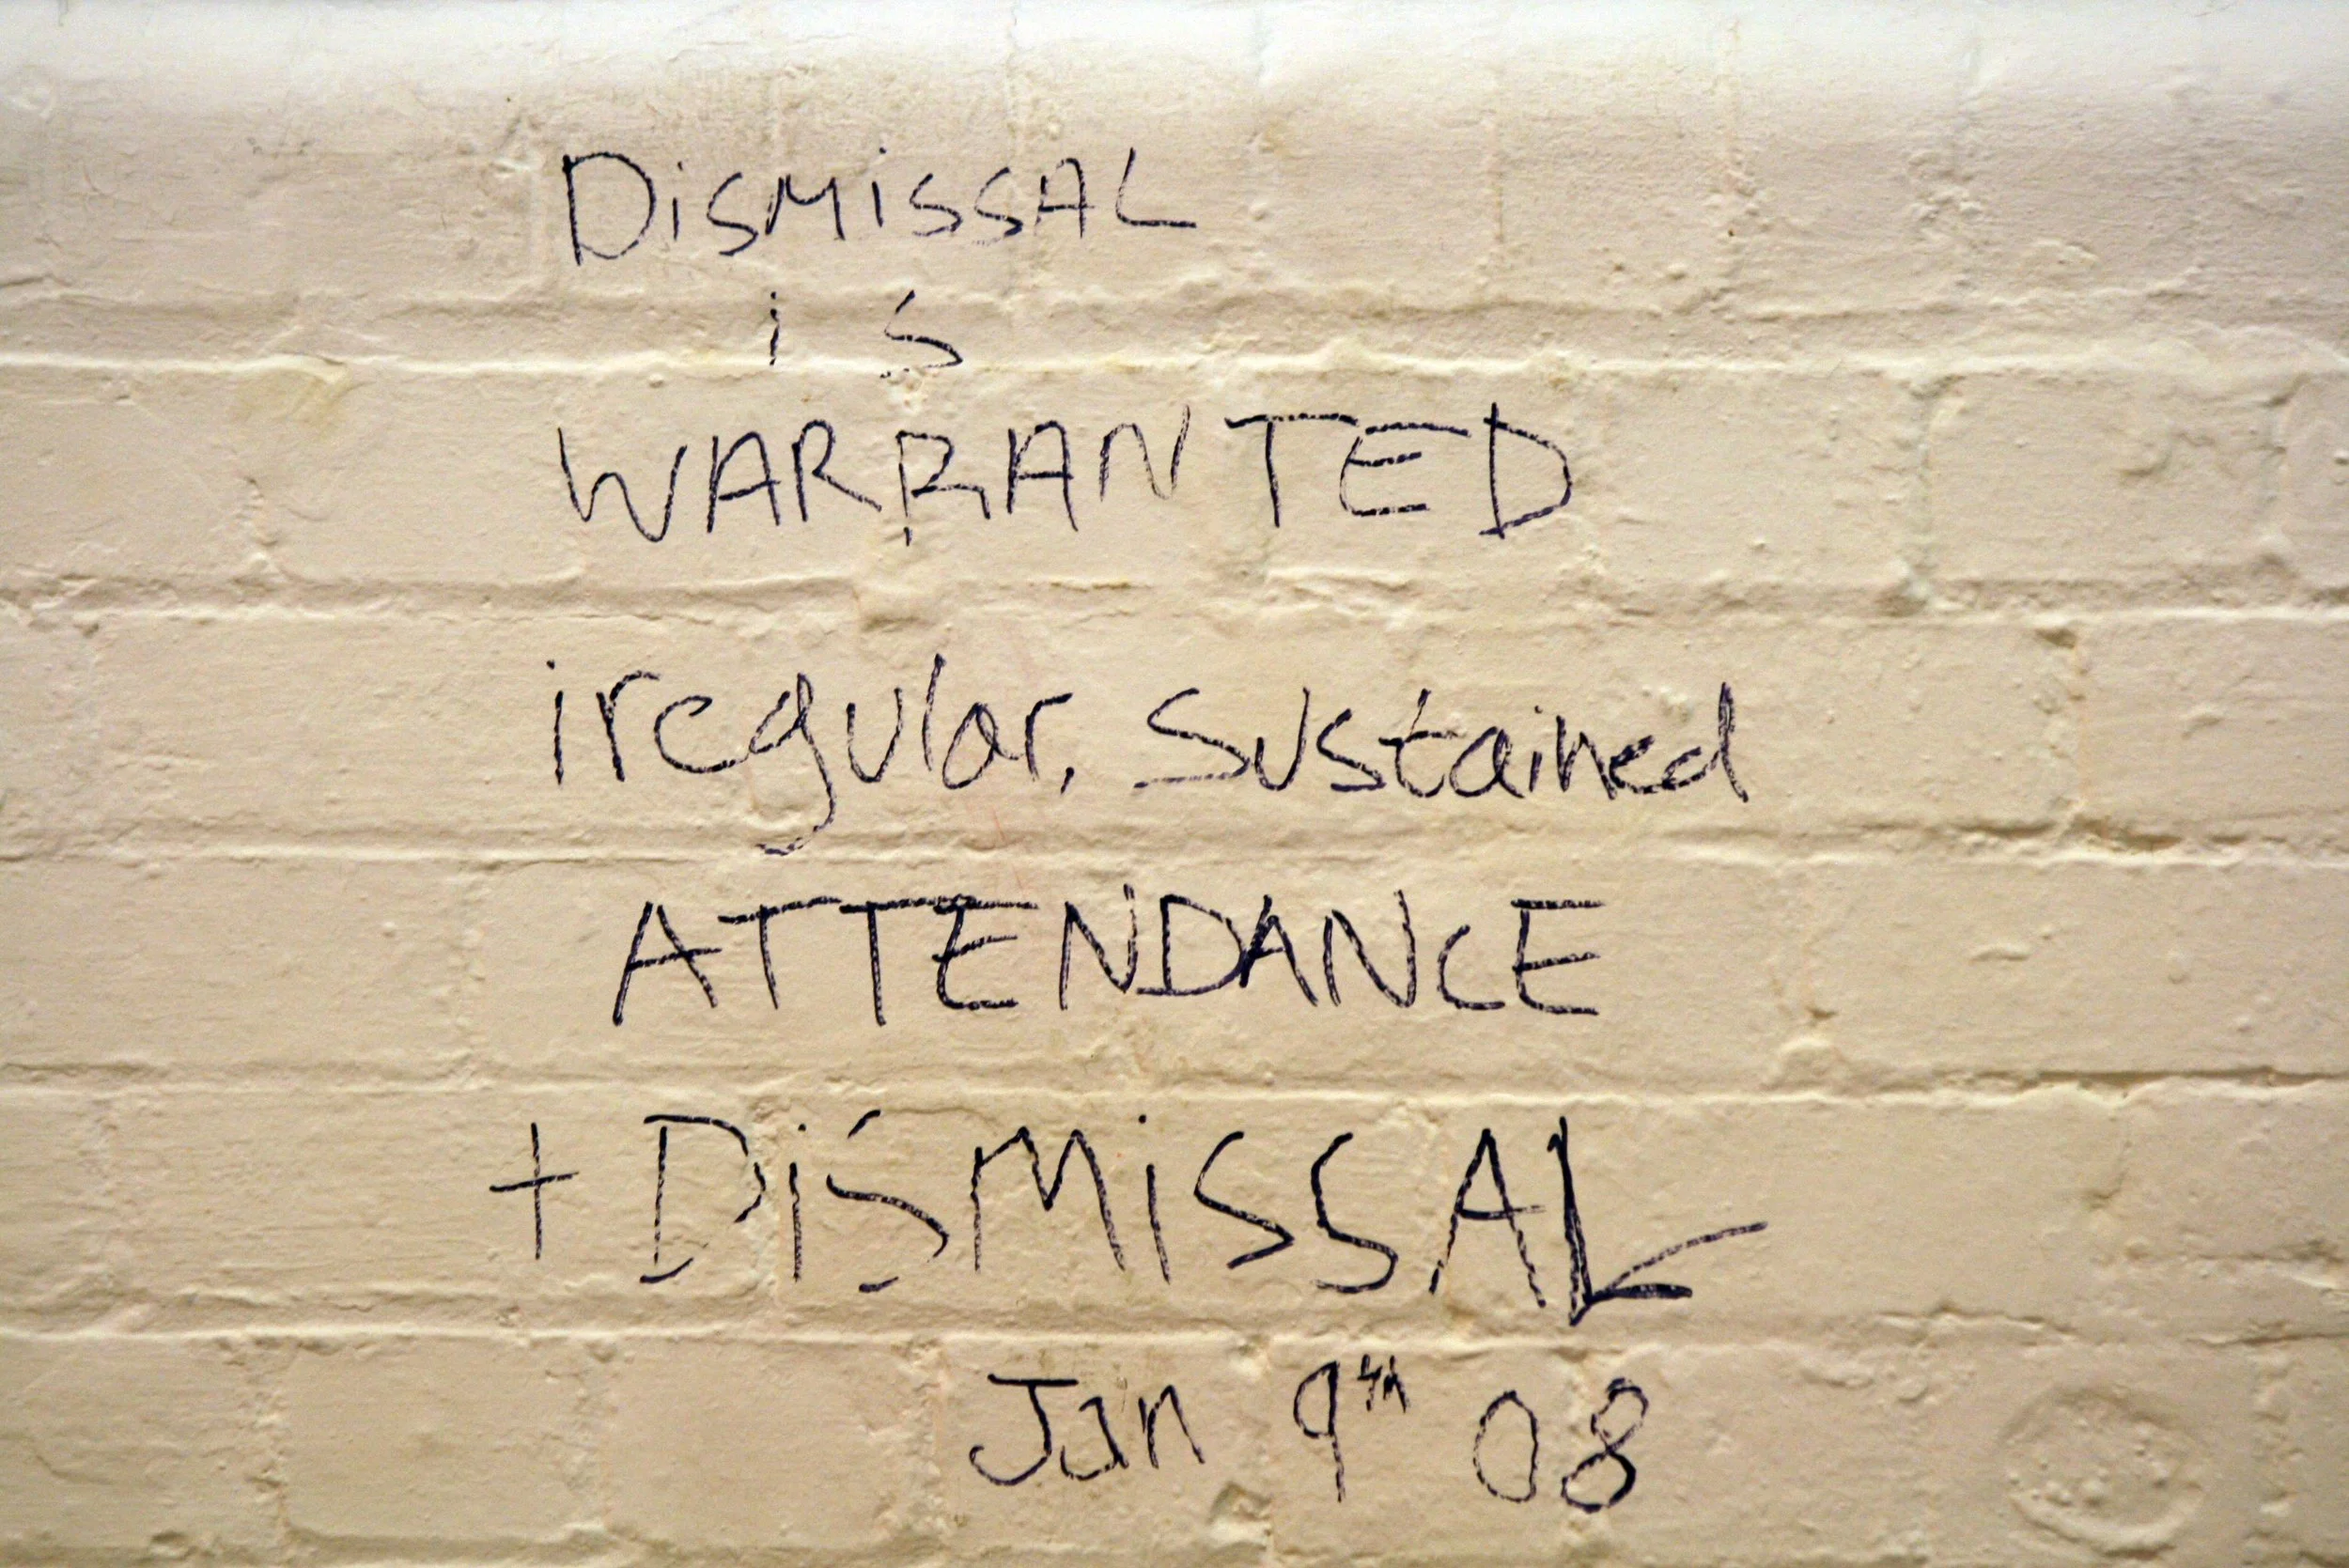 DiSMiSSAL
iS
WARRANTED
iregular, sustained
ATTENDANCE
+ DiSMiSSAL
Jan 9th 08